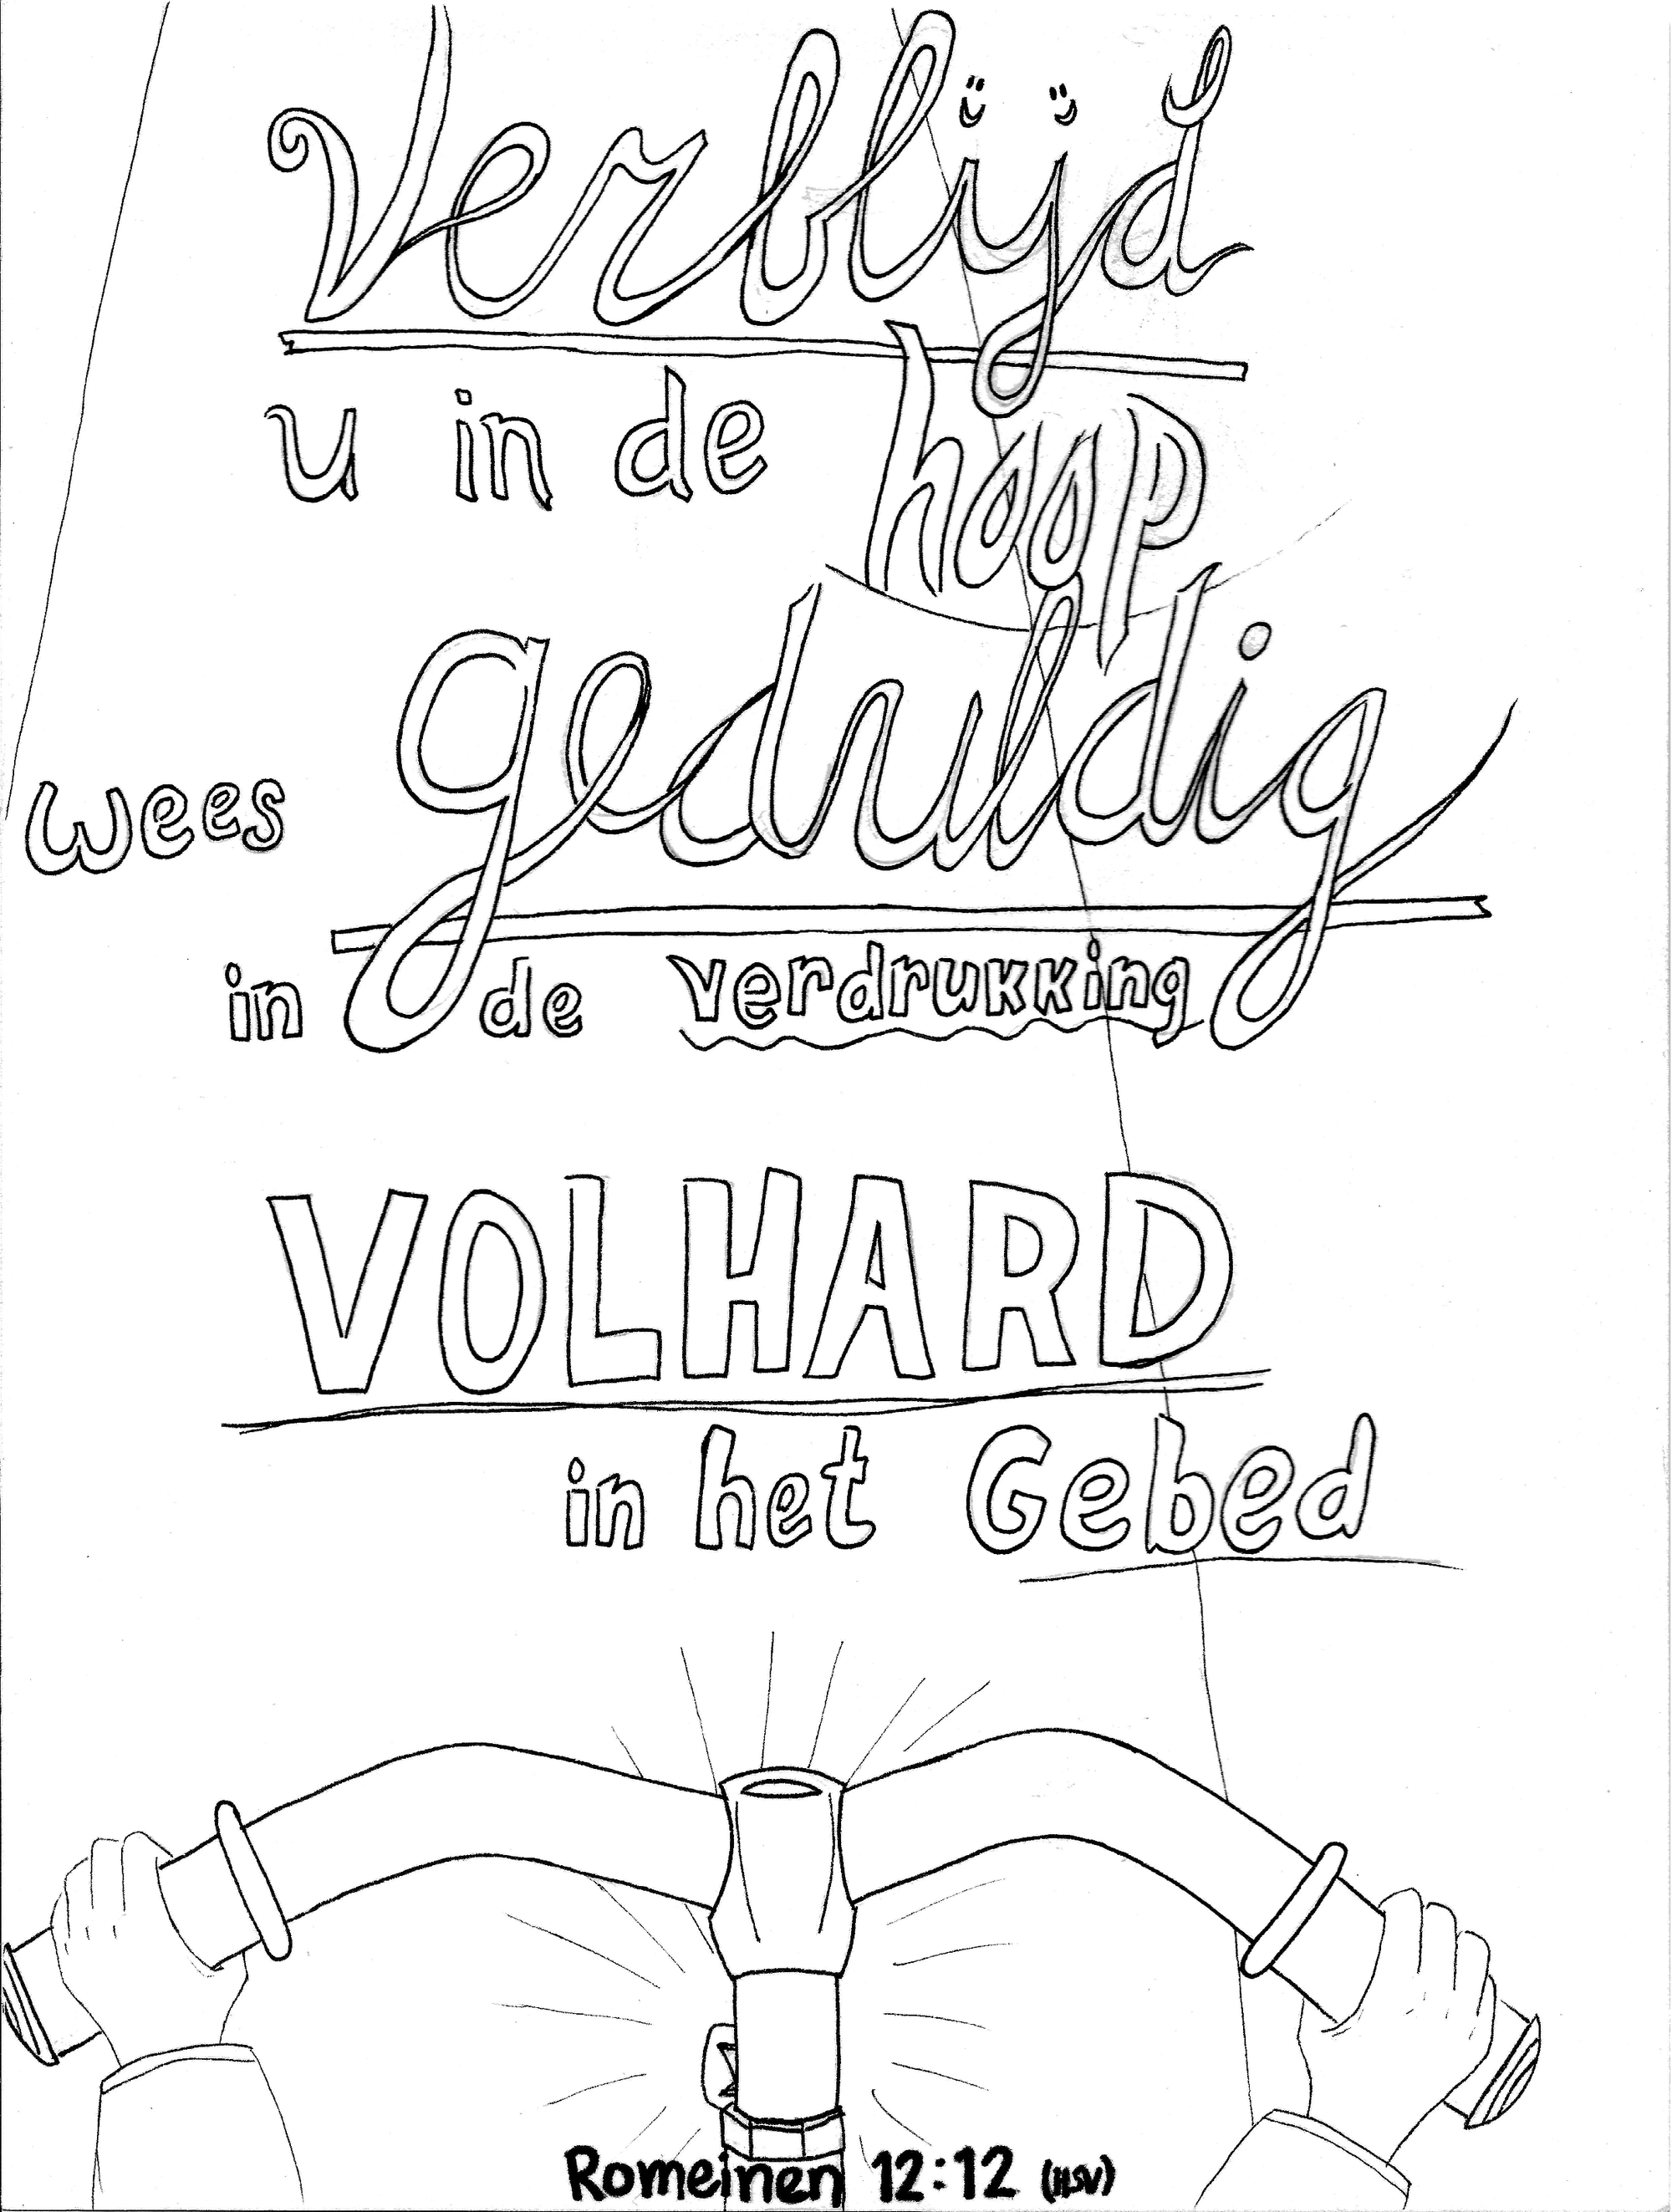 Verblijd
u in de hoop
wees geduldig
in de verdrukking
VOLHARD
in het Gebed
Romeinen 12:12 (HSV)